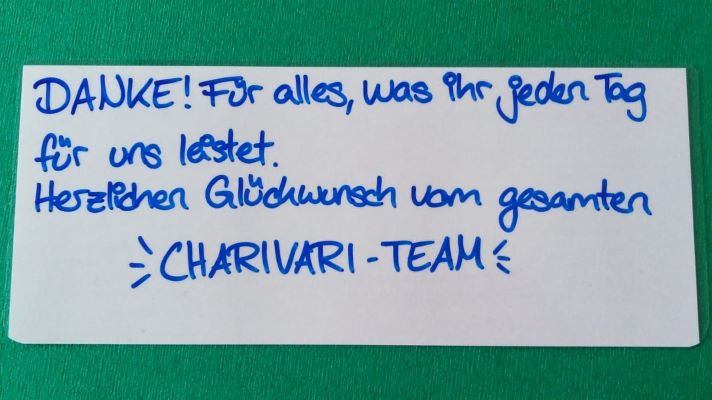 DANKE! Für alles, was ihr jeden Tag
für uns leistet.
Herzlichen Glückwunsch vom gesamten
CHARIVARI-TEAM